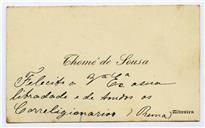 Thomé de Sousa
Felicita a V.ª Ex.ª a sua
libradade e de todos os
Correligionarios) Roma)